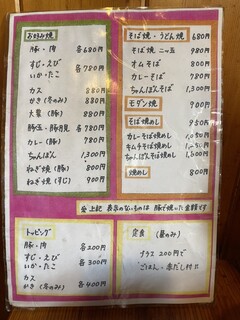 お好み焼
豚・肉 各680円
すじ・えび 各780円
いか・たこ
カス 880円
かき(冬のみ) 880円
大葉(豚) 880円
豚玉・豚月見 各780円
カレー(豚) 780円
ちゃんぽん 1,300円
ねぎ焼(豚) 800円
ねぎ焼(すじ) 900円
そば焼・うどん焼 680円
そば焼 ニュー玉 980円
オムそば 800円
カレーそば 780円
ちゃんぽん 1,300円
モダン焼 900円
そば焼めし 900円
カレーそば焼めし
キムチそば焼めし
ちゃんぽんそば焼めし 1,500円
焼めし 800円
※上記 表示のないものは 豚で焼いた金額です
トッピング
豚・肉 各200円
すじ・えび 各300円
いか・たこ
カス
かき(冬のみ) 各400円
定食 (昼のみ)
プラス 200円で
ごはん・赤だし付き